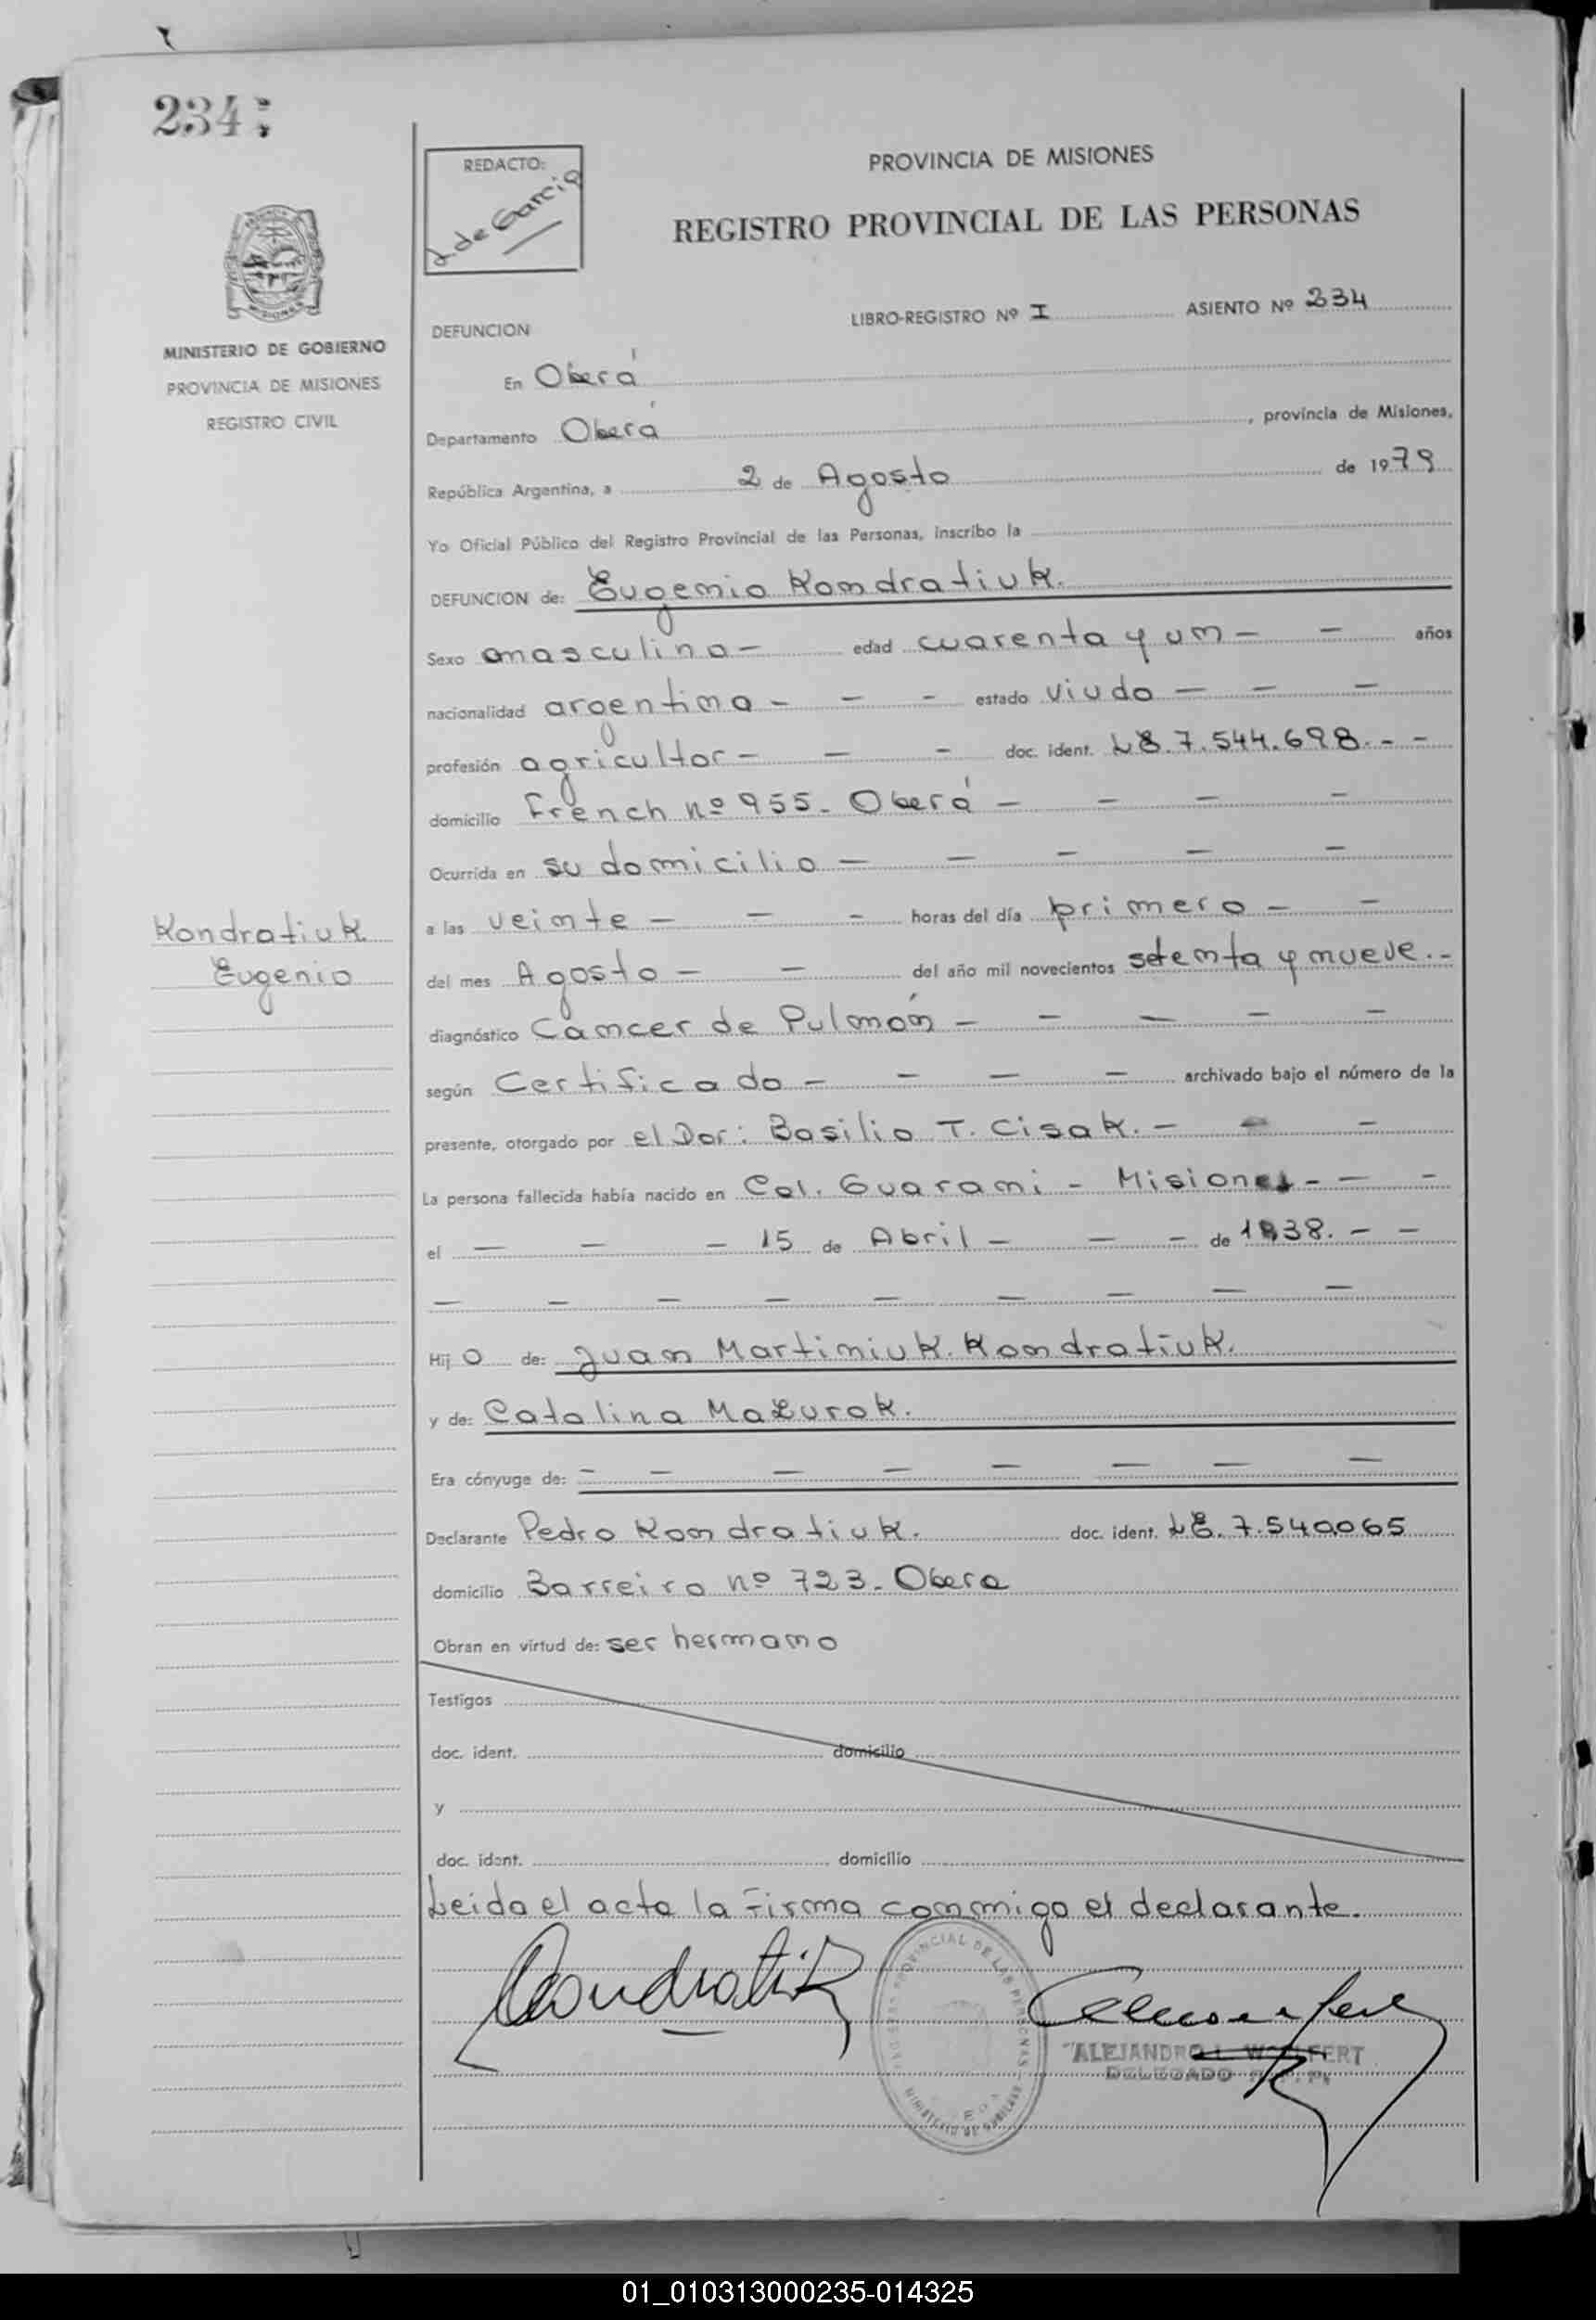 234
REDACTO:
de Garcia
PROVINCIA DE MISIONES
REGISTRO PROVINCIAL DE LAS PERSONAS
MISIONES
MINISTERIO DE GOBIERNO
PROVINCIA DE MISIONES
REGISTRO CIVIL
DEFUNCION
LIBRO-REGISTRO Nº I ASIENTO Nº 234
En Oberá
Departamento Oberá , provincia de Misiones,
República Argentina, a 2 de Agosto de 1979
Yo Oficial Público del Registro Provincial de las Personas, inscribo la
DEFUNCION de: Eugenio Kondratiuk.
Sexo masculino - edad cuarenta y un - - años
nacionalidad argentina - - - estado viudo - - -
profesión agricultor - - - doc. ident. L8.7.544.698. - -
domicilio French nº 955. Oberá - - - -
Ocurrida en su domicilio - - - - -
Kondratiuk
Eugenio
a las veinte - - - horas del día primero - -
del mes Agosto - - del año mil novecientos setenta y nueve. -
diagnóstico Cancer de Pulmón - - - - -
según Certificado - - - - archivado bajo el número de la
presente, otorgado por el Dor: Basilio T. Cisak. - - -
La persona fallecida había nacido en Col. Guarani - Misiones - - -
el - - - 15 de Abril - - - de 1938. - -
- - - - - - - - -
Hij o de: Juan Martiniuk. Kondratiuk.
y de: Catalina Mazurok.
Era cónyuge de: - - - - - - - -
Declarante Pedro Kondratiuk. doc. ident. L8. 7.540.065
domicilio Barreiro nº 723. Obera
Obran en virtud de: ser hermano
Testigos
doc. ident. domicilio
y
doc. ident. domicilio
Leida el acta la firma conmigo el declarante.
Kondratiuk
PROVINCIAL DE LAS PERSONAS
ALEJANDRO L. WOLFERT
DELEGADO
01_010313000235-014325